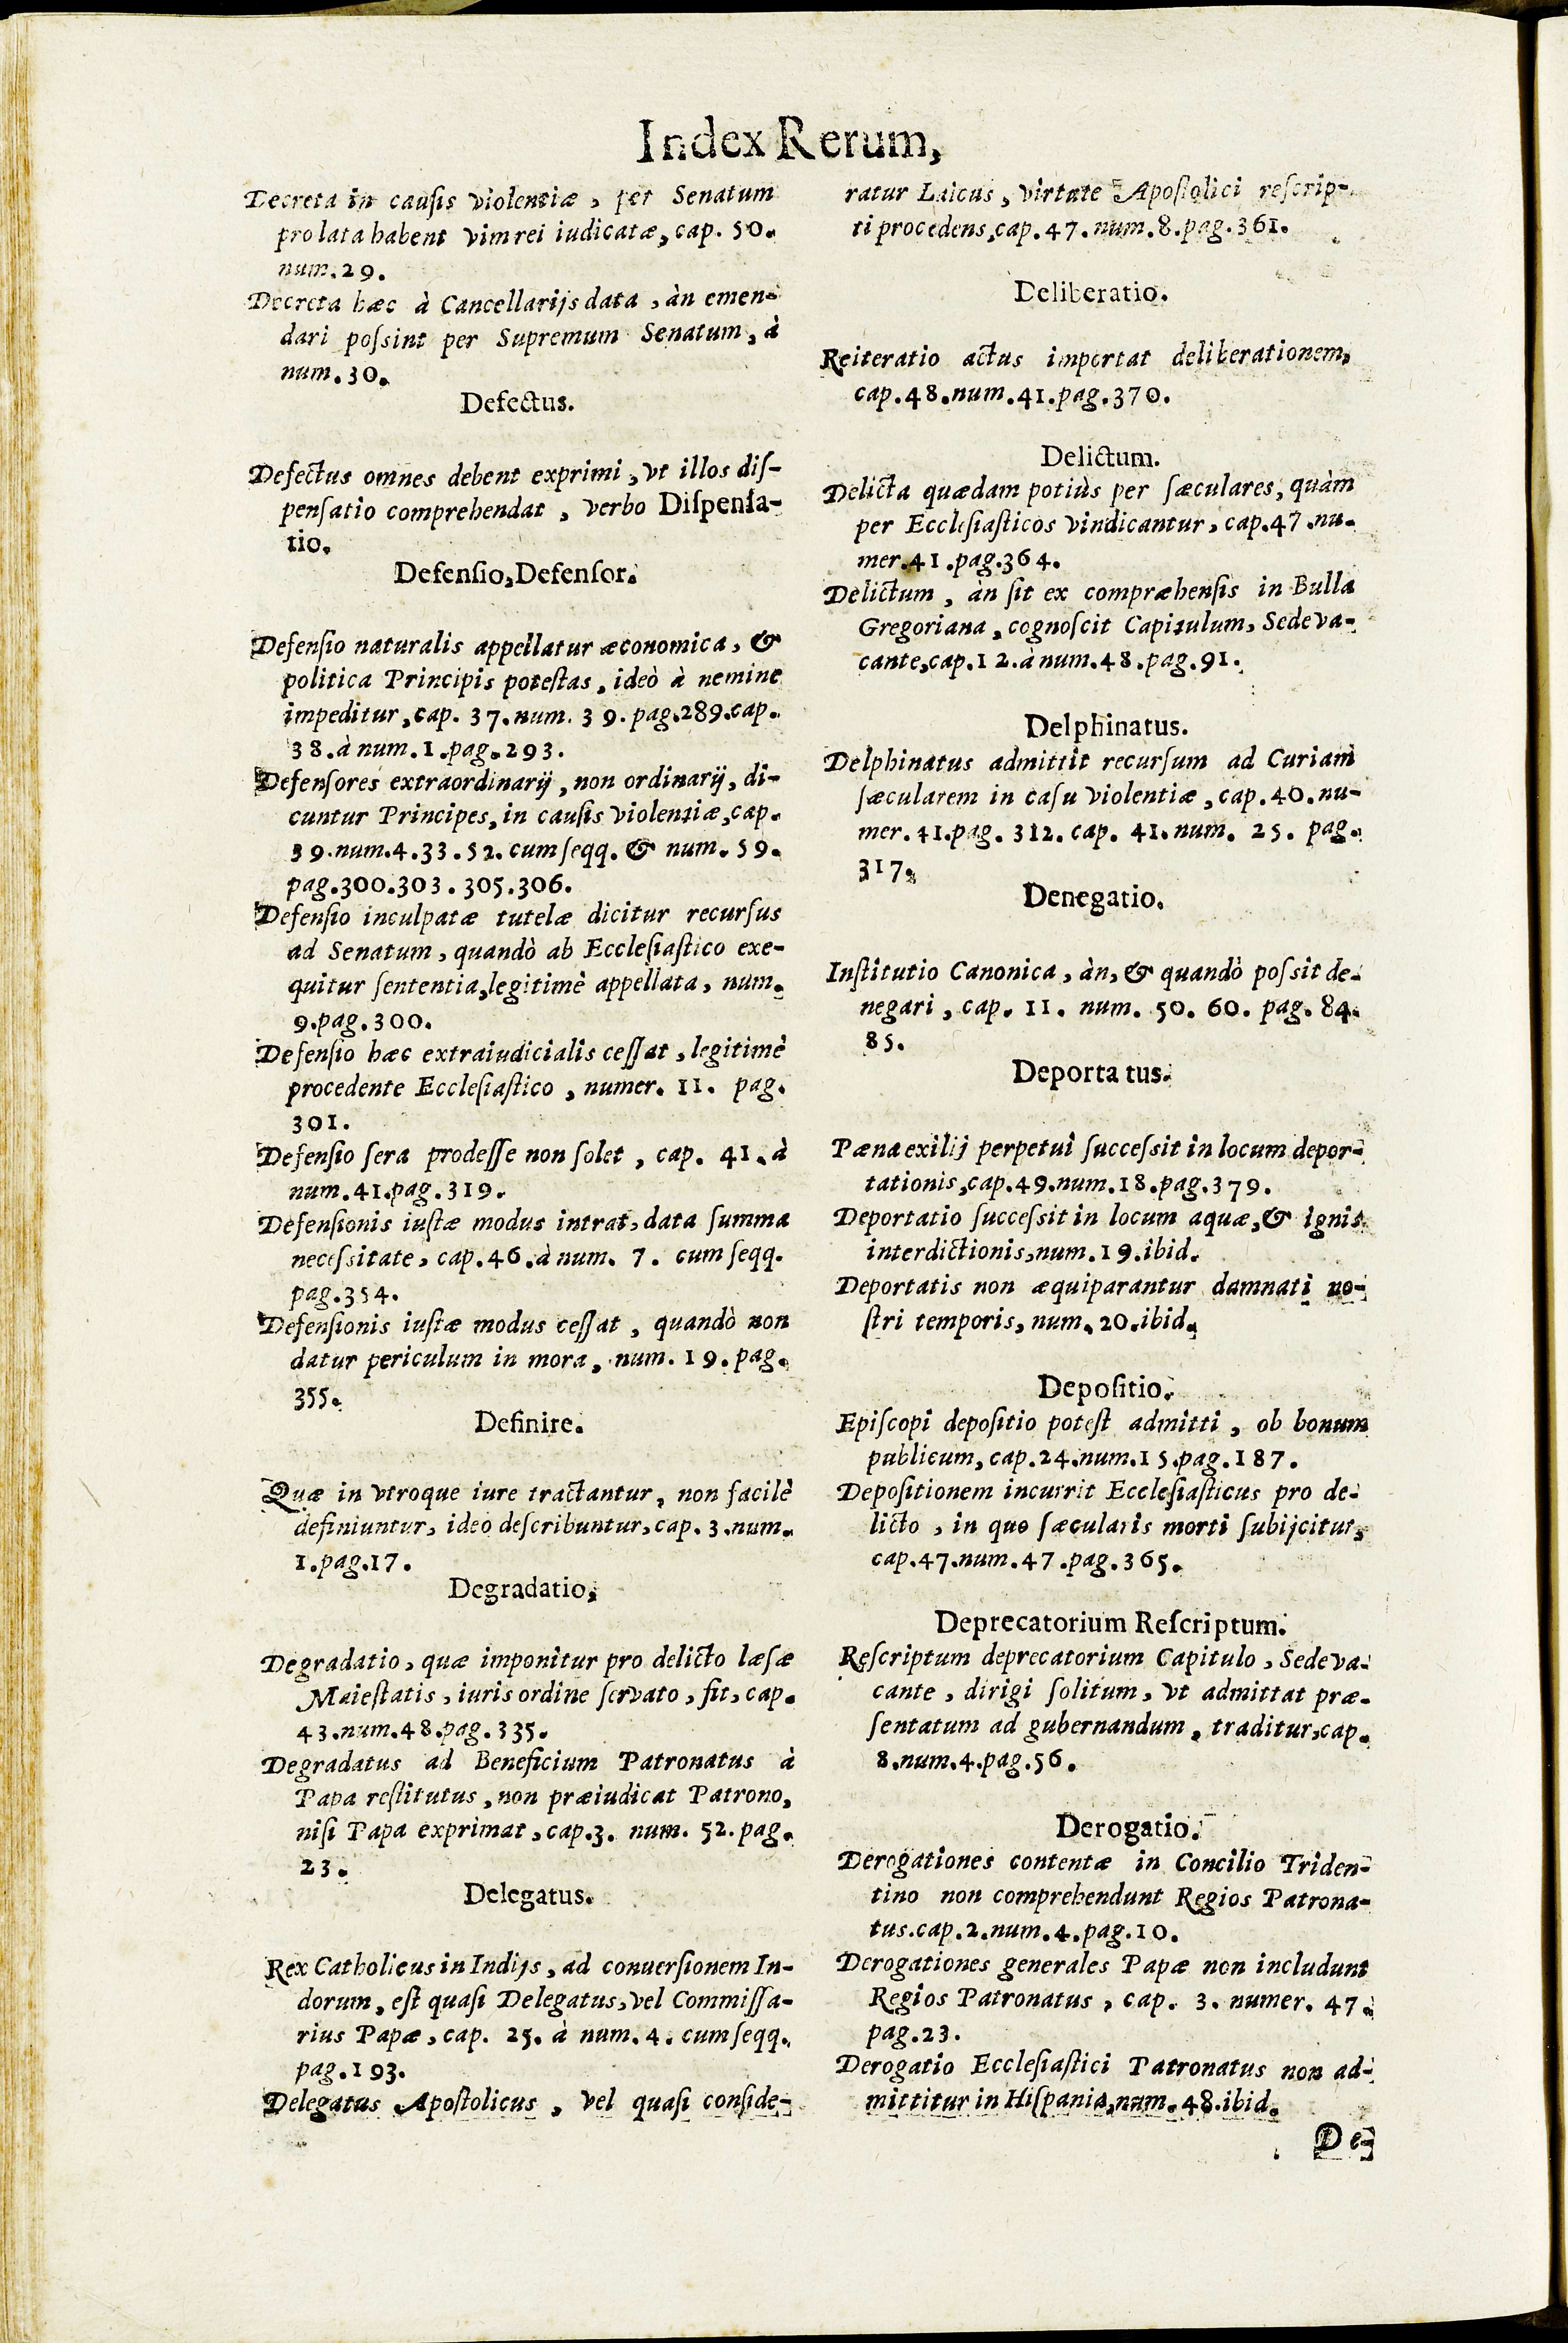 Index Rerum,
Decreta in causis violentiæ, per Senatum
prolata habent vim rei iudicatæ, cap. 50.
num. 29.
Decreta hæc à Cancellarijs data, àn emen-
dari possint per Supremum Senatum, à
num. 30.
Defectus.
Defectus omnes debent exprimi, vt illos dis-
pensatio comprehendat, verbo Dispensa-
tio.
Defensio, Defensor.
Defensio naturalis appellatur æconomica, &
politica Principis potestas, ideò à nemine
impeditur, cap. 37. num. 39. pag. 289. cap.
38. à num. 1. pag. 293.
Defensores extraordinarij, non ordinarij, di-
cuntur Principes, in causis violentiæ, cap.
39. num. 4. 33. 52. cum seqq. & num. 59.
pag. 300. 303. 305. 306.
Defensio inculpatæ tutelæ dicitur recursus
ad Senatum, quandò ab Ecclesiastico exe-
quitur sententia, legitimè appellata, num.
9. pag. 300.
Defensio hæc extraiudicialis cessat, legitimè
procedente Ecclesiastico, numer. 11. pag.
301.
Defensio sera prodesse non solet, cap. 41. à
num. 41. pag. 319.
Defensionis iustæ modus intrat, data summa
necessitate, cap. 46. à num. 7. cum seqq.
pag. 354.
Defensionis iustæ modus cessat, quandò non
datur periculum in mora, num. 19. pag.
355.
Definire.
Quæ in vtroque iure tractantur, non facilè
definiuntur, ideo describuntur, cap. 3. num.
1. pag. 17.
Degradatio,
Degradatio, quæ imponitur pro delicto læsæ
Maiestatis, iuris ordine servato, fit, cap.
43. num. 48. pag. 335.
Degradatus ad Beneficium Patronatus à
Papa restitutus, non præiudicat Patrono,
nisi Papa exprimat, cap. 3. num. 52. pag.
23.
Delegatus.
Rex Catholicus in Indijs, ad conuersionem In-
dorum, est quasi Delegatus, vel Commissa-
rius Papæ, cap. 25. à num. 4. cum seqq.
pag. 193.
Delegatus Apostolicus, vel quasi conside-
ratur Laicus, virtute Apostolici rescrip-
ti procedens, cap. 47. num. 8. pag. 361.
Deliberatio.
Reiteratio actus importat deliberationem,
cap. 48. num. 41. pag. 370.
Delictum.
Delicta quædam potiùs per sæculares, quàm
per Ecclesiasticos vindicantur, cap. 47. nu-
mer. 41. pag. 364.
Delictum, àn sit ex compræhensis in Bulla
Gregoriana, cognoscit Capitulum, Sede va-
cante, cap. 12. à num. 48. pag. 91.
Delphinatus.
Delphinatus admittit recursum ad Curiam
sæcularem in casu violentiæ, cap. 40. nu-
mer. 41. pag. 312. cap. 41. num. 25. pag.
317.
Denegatio.
Institutio Canonica, àn, & quandò possit de-
negari, cap. 11. num. 50. 60. pag. 84.
85.
Deporta tus.
Pæna exilij perpetui successit in locum depor-
tationis, cap. 49. num. 18. pag. 379.
Deportatio successit in locum aquæ, & ignis
interdictionis, num. 19. ibid.
Deportatis non æquiparantur damnati no-
stri temporis, num. 20. ibid.
Depositio.
Episcopi depositio potest admitti, ob bonum
publicum, cap. 24. num. 15. pag. 187.
Depositionem incurrit Ecclesiasticus pro de-
licto, in quo sæcularis morti subijcitur,
cap. 47. num. 47. pag. 365.
Deprecatorium Rescriptum.
Rescriptum deprecatorium Capitulo, Sede va-
cante, dirigi solitum, vt admittat præ-
sentatum ad gubernandum, traditur, cap.
8. num. 4. pag. 56.
Derogatio.
Derogationes contentæ in Concilio Triden-
tino non comprehendunt Regios Patrona-
tus. cap. 2. num. 4. pag. 10.
Derogationes generales Papæ non includunt
Regios Patronatus, cap. 3. numer. 47.
pag. 23.
Derogatio Ecclesiastici Patronatus non ad-
mittitur in Hispania, num. 48. ibid.
De-